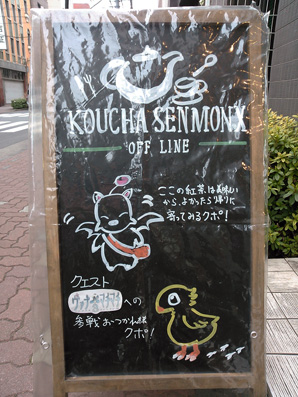 KOUCHA SENMONX
OFF LINE
ここの紅茶は美味しい
から、よかったら帰りに
寄ってみるクポ!
クエスト
への
参戦おつかれ様
クポ!